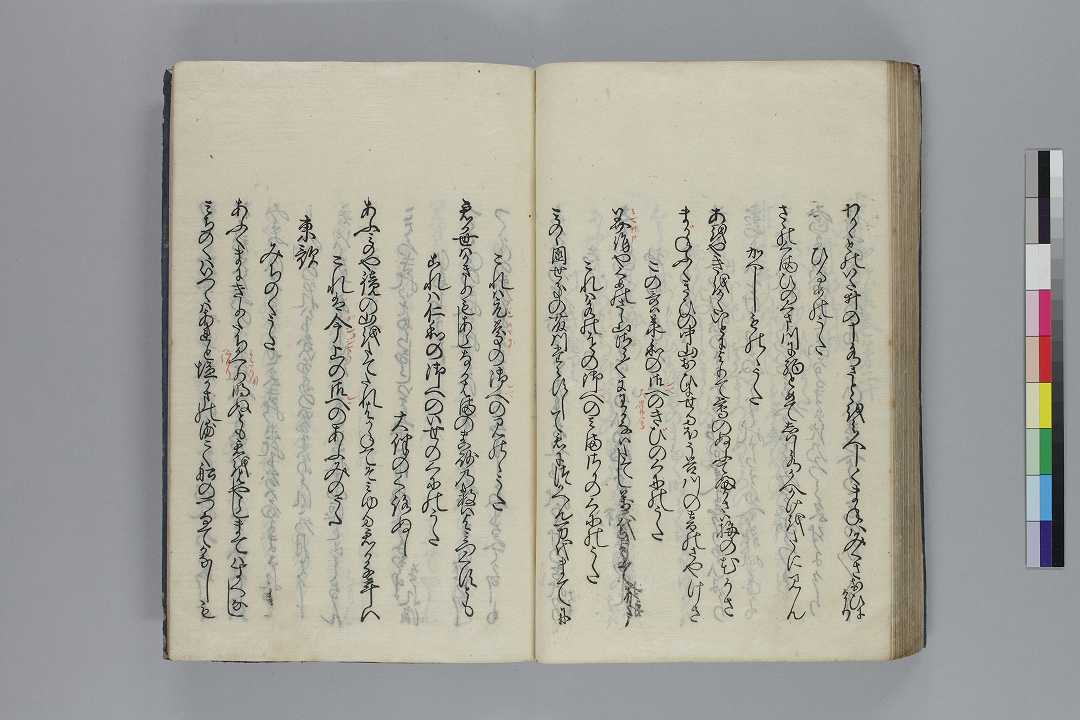 わかかとのいた井のし水さとをとをみ人しくまねはみくさおひにけり
ひるめのうた
さゝのくまひのくま川に駒とめてしはし水かへかけをたにみん
かへしものゝうた
あをやきをかたいとによりて鶯のぬふてふかさは梅の花かさ
まかねふくきひの中山おひにせるほそ谷川の音のさやけさ
この哥は承和の御へのきひのくにのうた
美作やくめのさら山さら〳〵にわかなはたてし万代まてに
これは水のをの御へのみまさかのくにのうた
みのゝ国せきの藤川たえすして君につかへん万代まてに
これは元慶の御へのみのゝうた
君か世はかきりもあらしなかはまの真砂の数はよみつくすとも
これは仁和の御へのいせのくにのうた
大伴のくろぬし
あふみのや鏡の山をたてたれはかねてそみゆる君か千年は
これは今上の御へのあふみのうた
東歌
みちのくうた
あふくまにきりたちわたり明ぬとも君をはやらしまてはすへなし
みちのくはいつくはあれと塩かまの浦こく船のつなてかなしも